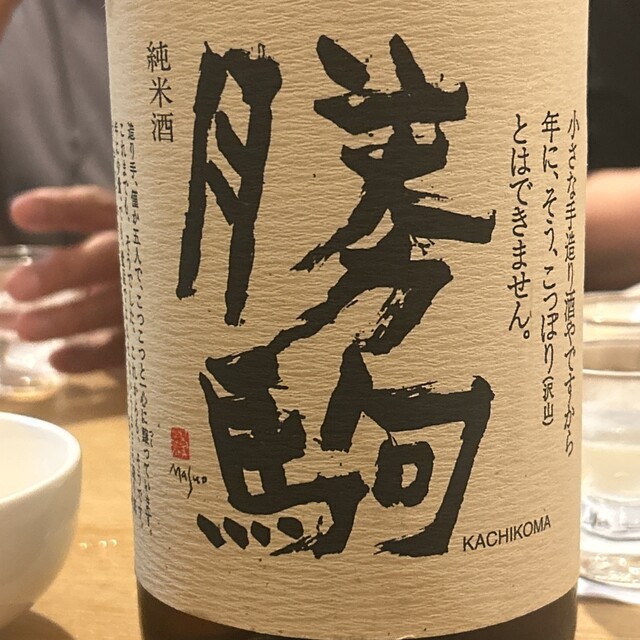 小さな手造り酒やですから
年に、そう、こつぽり(沢山)
とはできません。
勝駒
純米酒
造り手、僅か五人で、こつこつと一心に醸っています。
MASUO
KACHIKOMA